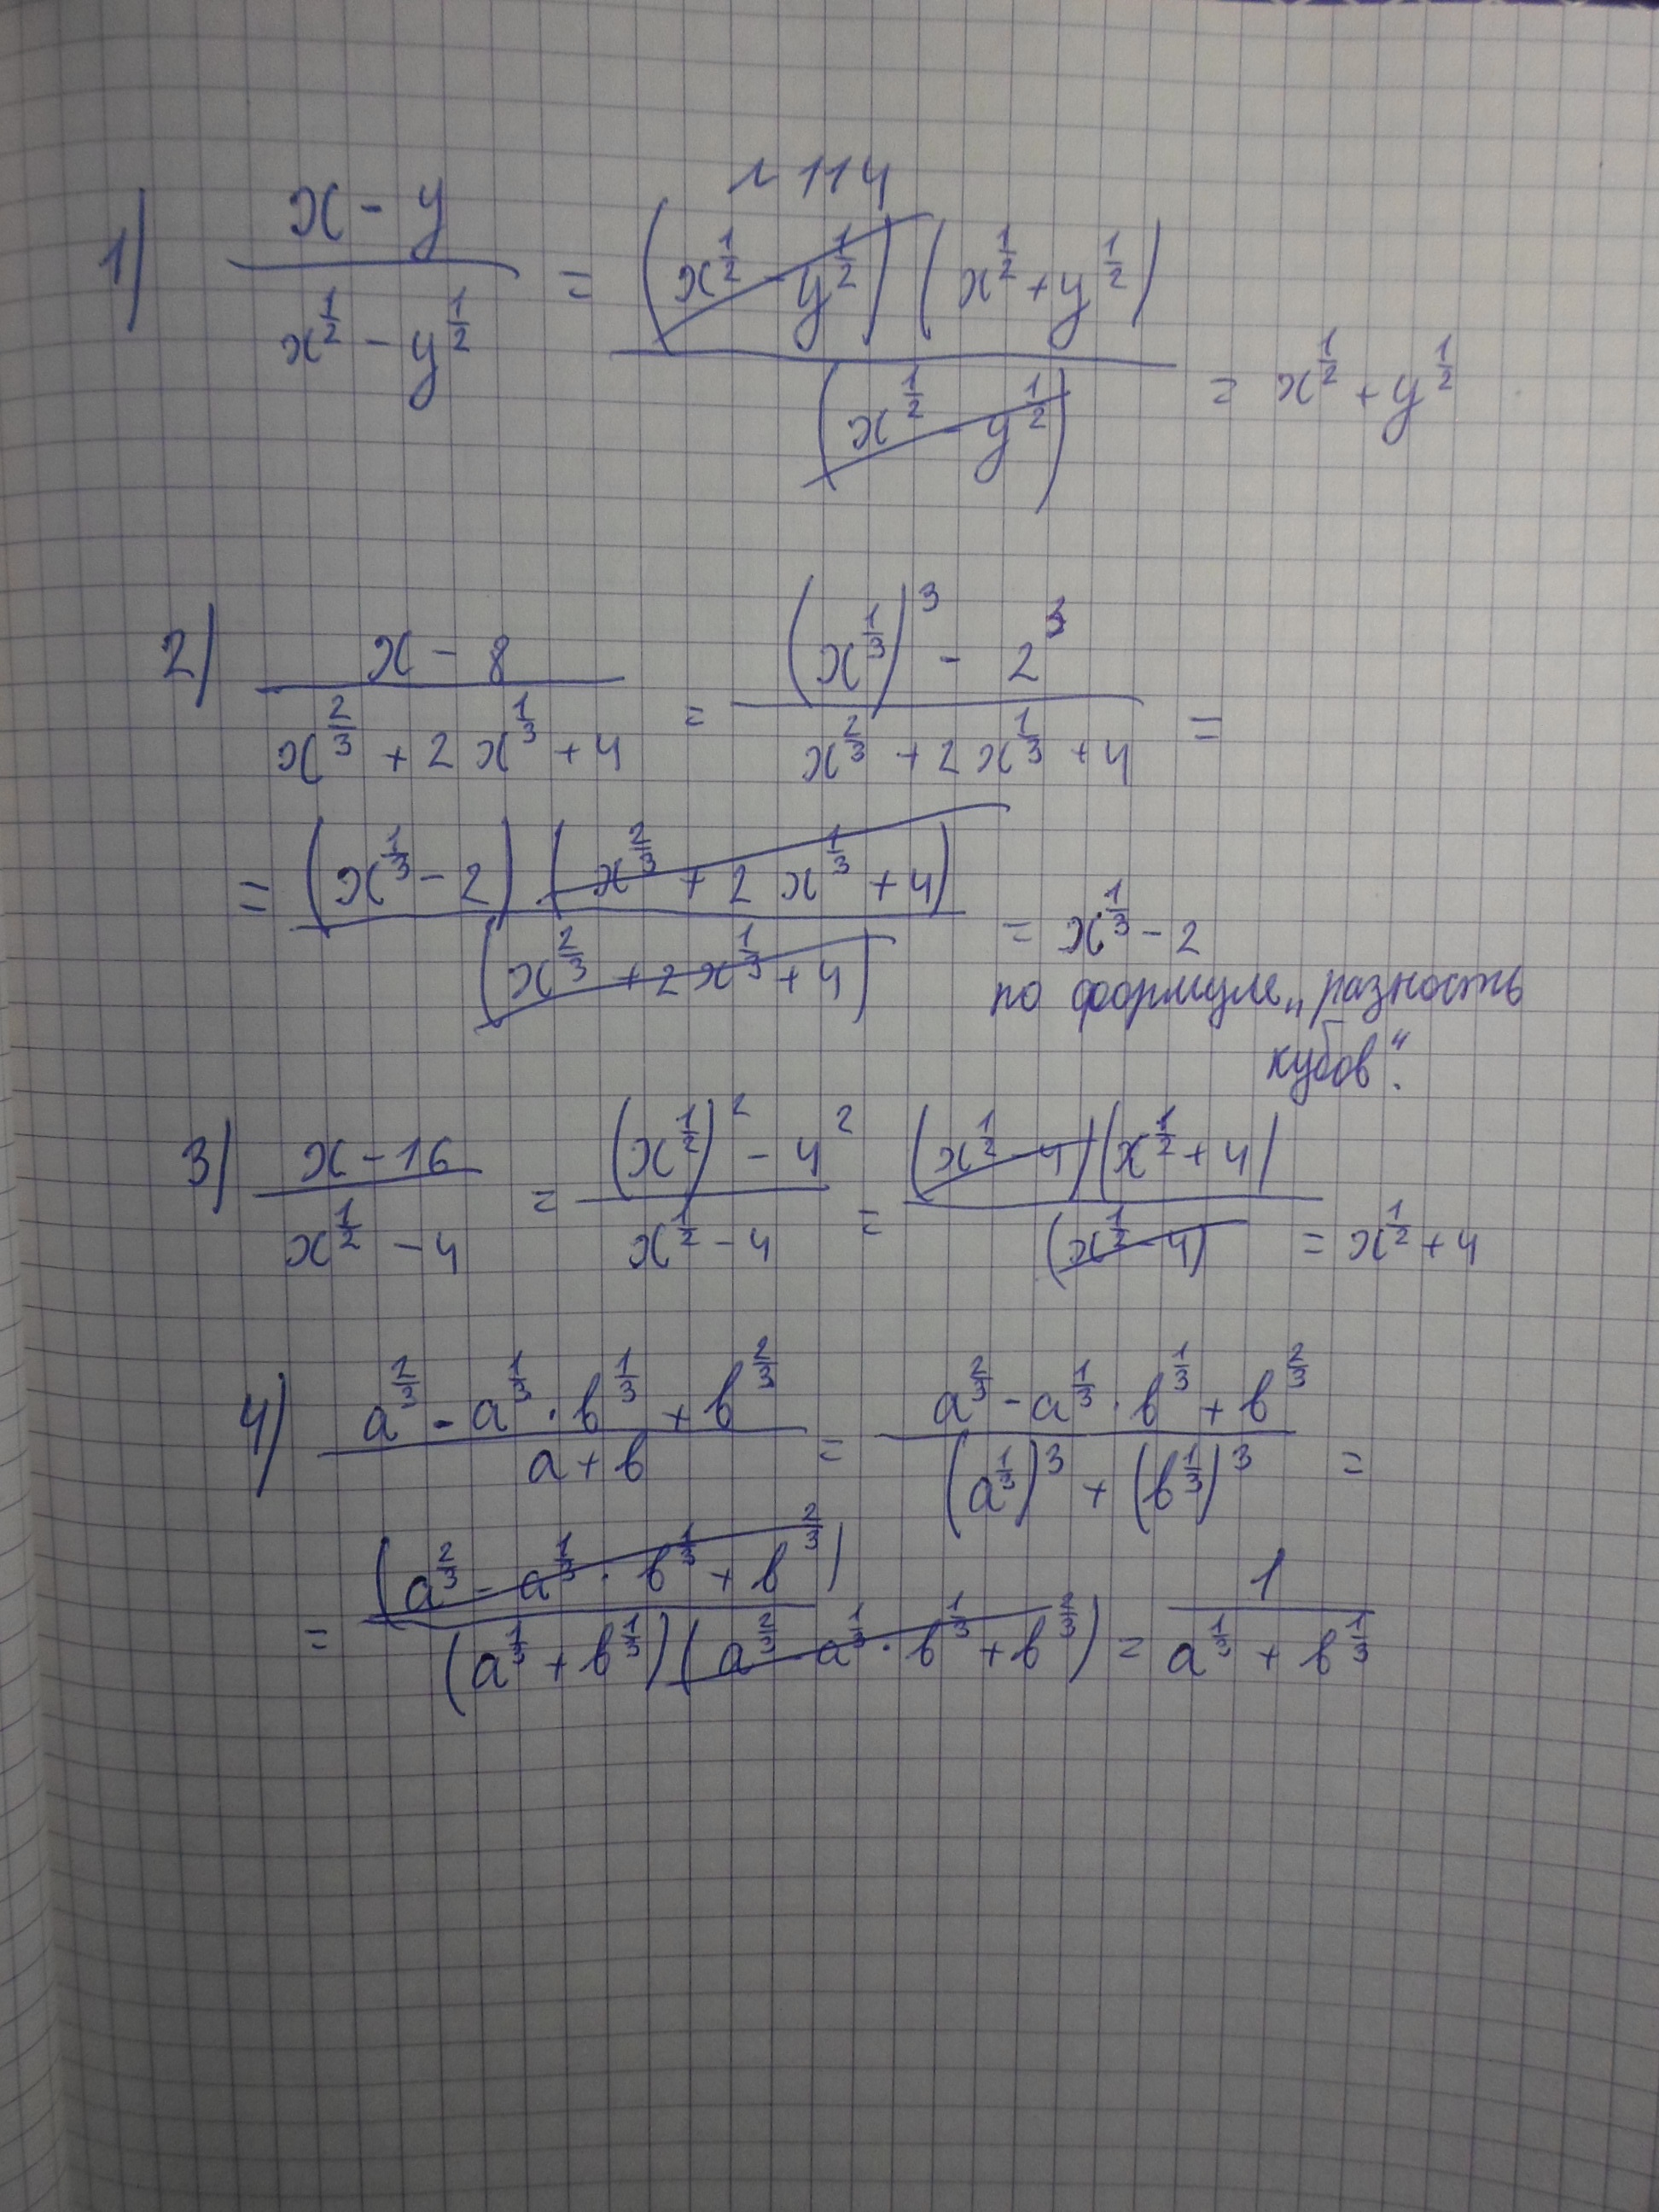 № 114
1) \frac{x - y}{x^{\frac{1}{2}} - y^{\frac{1}{2}}} = \frac{(x^{\frac{1}{2}} - y^{\frac{1}{2}})(x^{\frac{1}{2}} + y^{\frac{1}{2}})}{(x^{\frac{1}{2}} - y^{\frac{1}{2}})} = x^{\frac{1}{2}} + y^{\frac{1}{2}}
2) \frac{x - 8}{x^{\frac{2}{3}} + 2x^{\frac{1}{3}} + 4} = \frac{(x^{\frac{1}{3}})^3 - 2^3}{x^{\frac{2}{3}} + 2x^{\frac{1}{3}} + 4} =
= \frac{(x^{\frac{1}{3}} - 2)(x^{\frac{2}{3}} + 2x^{\frac{1}{3}} + 4)}{(x^{\frac{2}{3}} + 2x^{\frac{1}{3}} + 4)} = x^{\frac{1}{3}} - 2
по формуле „разность
кубов“.
3) \frac{x - 16}{x^{\frac{1}{2}} - 4} = \frac{(x^{\frac{1}{2}})^2 - 4^2}{x^{\frac{1}{2}} - 4} = \frac{(x^{\frac{1}{2}} - 4)(x^{\frac{1}{2}} + 4)}{(x^{\frac{1}{2}} - 4)} = x^{\frac{1}{2}} + 4
4) \frac{a^{\frac{2}{3}} - a^{\frac{1}{3}} \cdot b^{\frac{1}{3}} + b^{\frac{2}{3}}}{a + b} = \frac{a^{\frac{2}{3}} - a^{\frac{1}{3}} \cdot b^{\frac{1}{3}} + b^{\frac{2}{3}}}{(a^{\frac{1}{3}})^3 + (b^{\frac{1}{3}})^3} =
= \frac{(a^{\frac{2}{3}} - a^{\frac{1}{3}} \cdot b^{\frac{1}{3}} + b^{\frac{2}{3}})}{(a^{\frac{1}{3}} + b^{\frac{1}{3}})(a^{\frac{2}{3}} - a^{\frac{1}{3}} \cdot b^{\frac{1}{3}} + b^{\frac{2}{3}})} = \frac{1}{a^{\frac{1}{3}} + b^{\frac{1}{3}}}